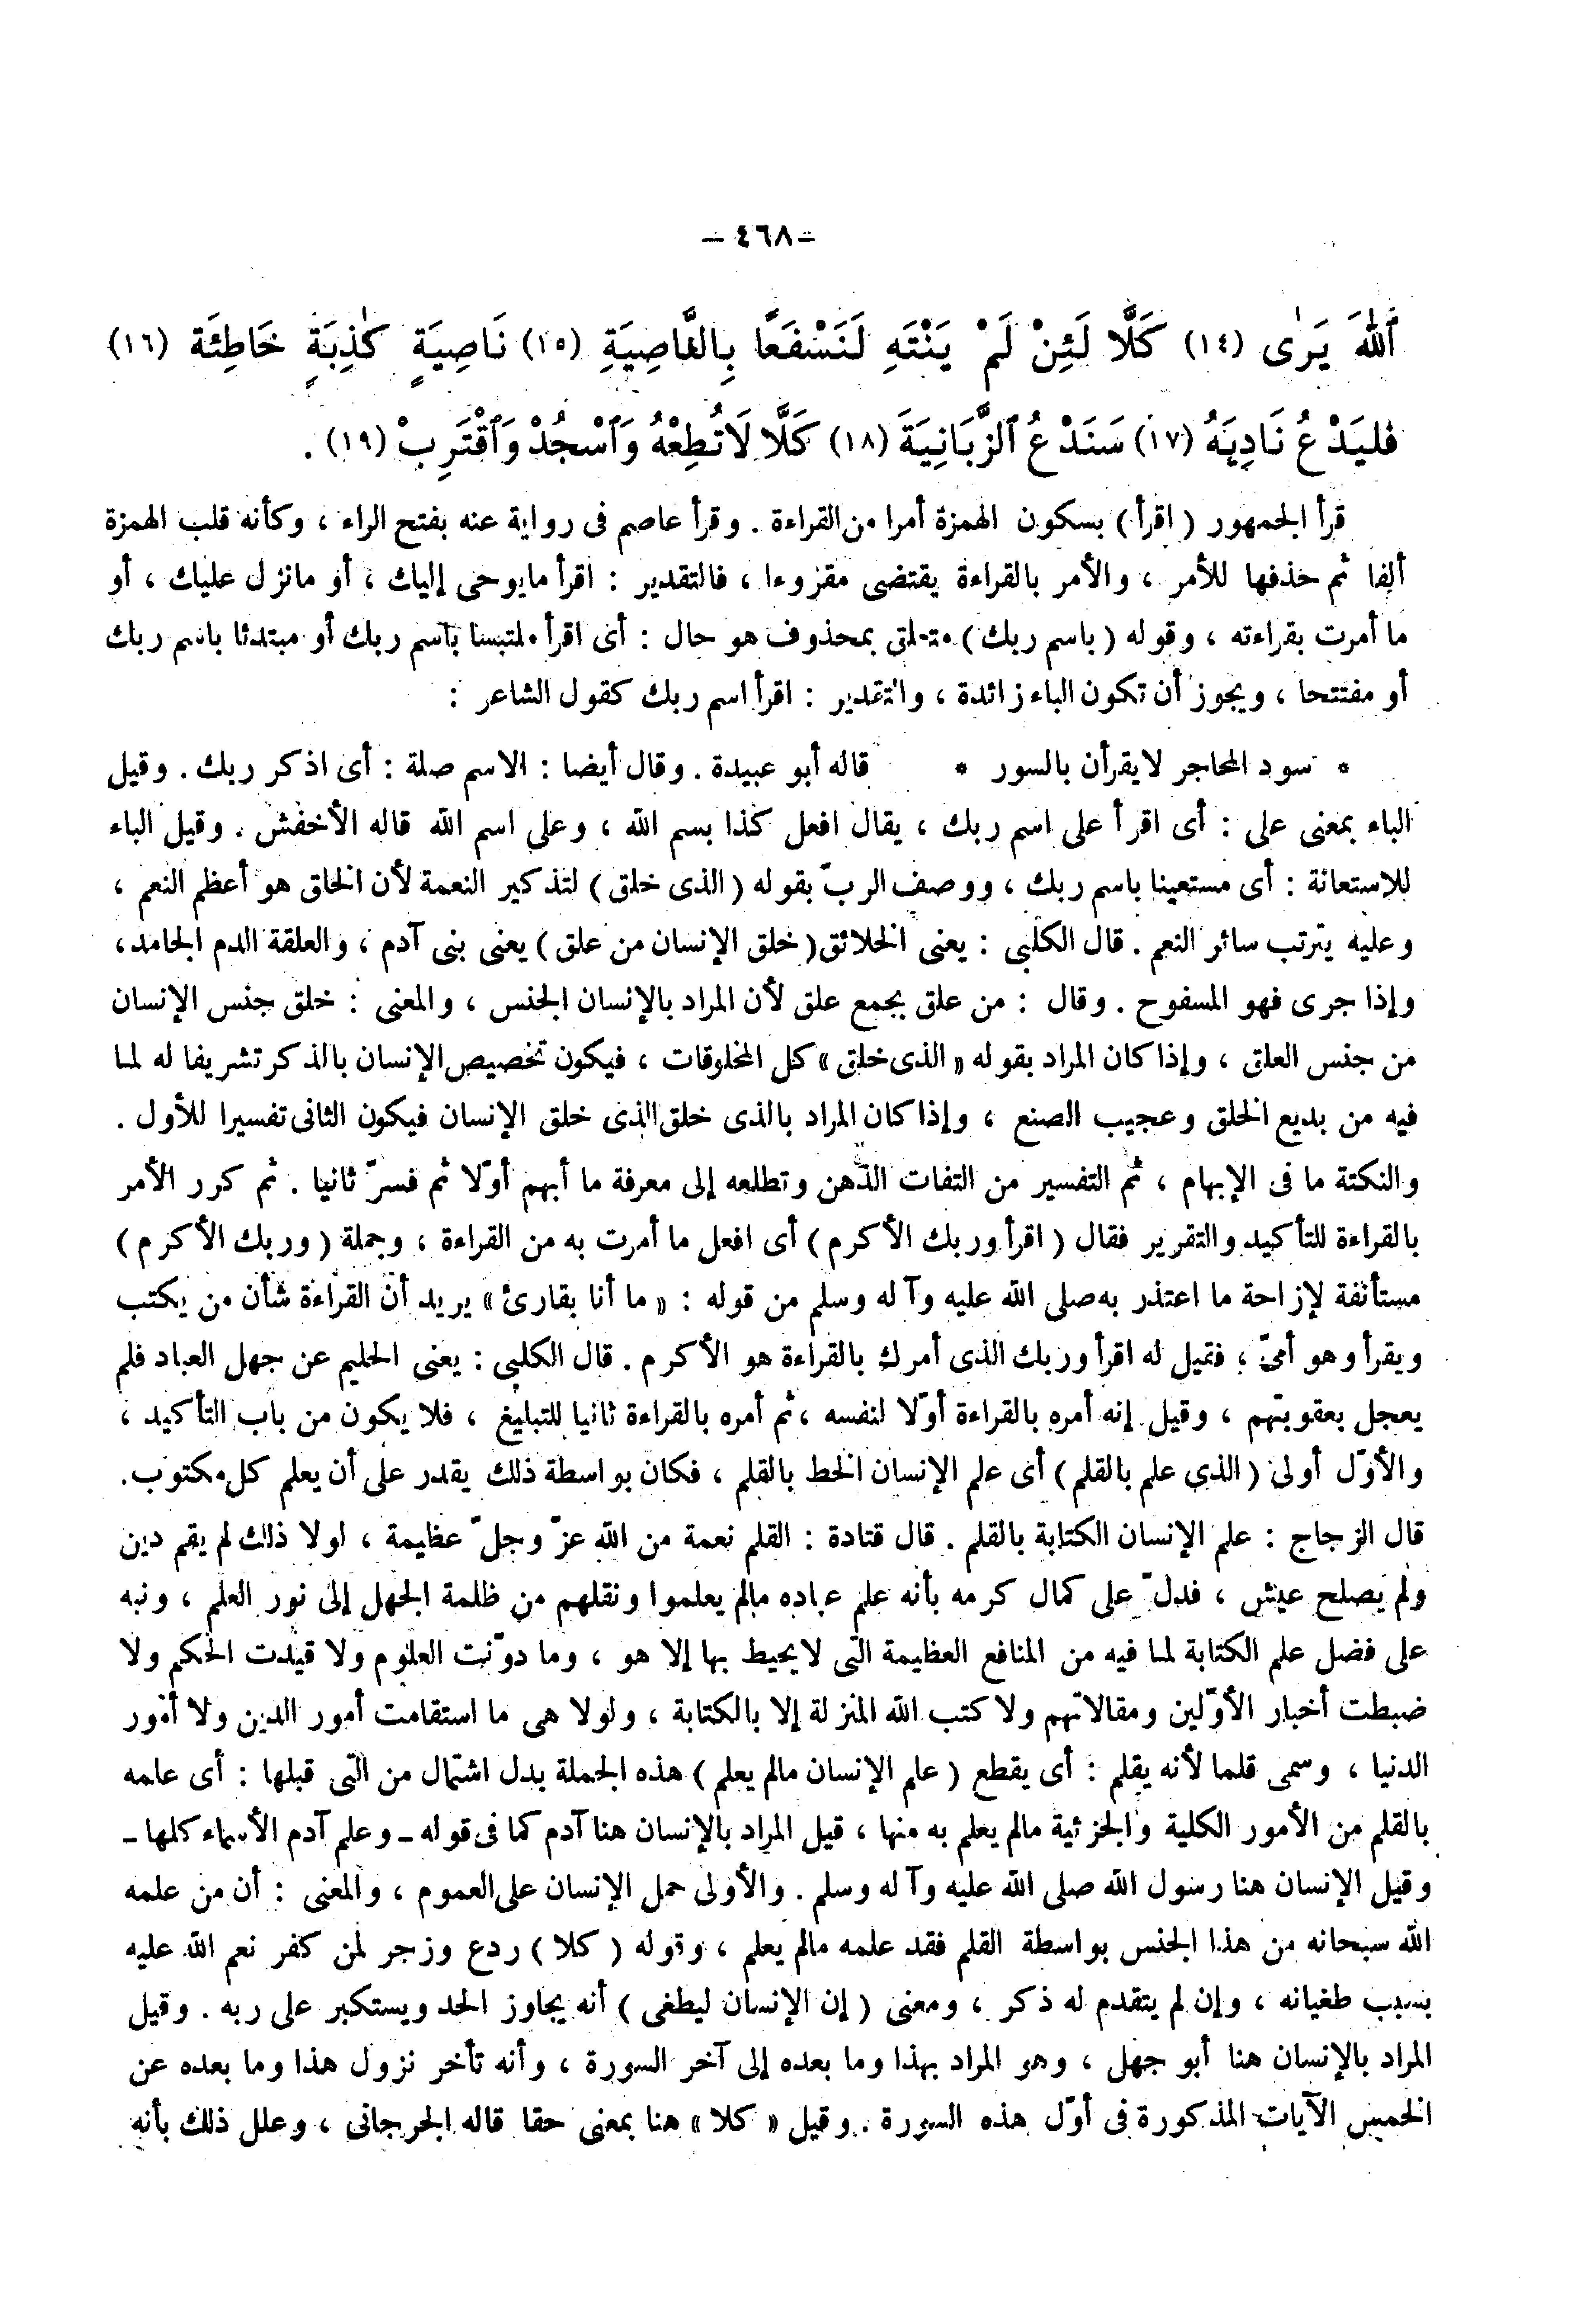 – ٤٦٨ –
ٱللَّهَ يَرَىٰ (١٤) كَلَّا لَئِنْ لَمْ يَنْتَهِ لَنَسْفَعًا بِالنَّاصِيَةِ (١٥) نَاصِيَةٍ كَٰذِبَةٍ خَاطِئَة (١٦)
فليَدْعُ نَادِيَهُ (١٧) سَنَدْعُ ٱلزَّبَانِيَةَ (١٨) كَلَّا لَاتُطِعْهُ وَٱسْجُدْ وَٱقْتَرِبْ (١٩) .
قرأ الجمهور ( اقرأ ) بسكون الهمزة أمرا من القراءة . وقرأ عاصم فى رواية عنه بفتح الراء ، وكأنه قلب الهمزة
ألفا ثم حذفها للأمر ، والأمر بالقراءة يقتضى مقروءا ، فالتقدير : اقرأ مايوحى إليك ، أو مانزل عليك ، أو
ما أمرت بقراءته ، وقوله ( باسم ربك ) متعلق بمحذوف هو حال : أى اقرأ ملتبسا باسم ربك أو مبتدئا باسم ربك
أو مفتتحا ، ويجوز أن تكون الباء زائدة ، والتقدير : اقرأ اسم ربك كقول الشاعر :
* سود المحاجر لايقرأن بالسور * قاله أبو عبيدة . وقال أيضا : الاسم صلة : أى اذكر ربك . وقيل
الباء بمعنى على : أى اقرأ على اسم ربك ، يقال افعل كذا بسم الله ، وعلى اسم الله قاله الأخفش . وقيل الباء
للاستعانة : أى مستعينا باسم ربك ، ووصف الربّ بقوله ( الذى خلق ) لتذكير النعمة لأن الخلق هو أعظم النعم ،
وعليه يترتب سائر النعم . قال الكلبى : يعنى الخلائق ( خلق الإنسان من علق ) يعنى بنى آدم ، والعلقة الدم الجامد ،
وإذا جرى فهو المسفوح . وقال : من علق بجمع علق لأن المراد بالإنسان الجنس ، والمعنى : خلق جنس الإنسان
من جنس العلق ، وإذا كان المراد بقوله « الذى خلق » كل المخلوقات ، فيكون تخصيص الإنسان بالذكر تشريفا له لما
فيه من بديع الخلق وعجيب الصنع ، وإذا كان المراد بالذى خلق الذى خلق الإنسان فيكون الثانى تفسيرا للأول .
والنكتة ما فى الإبهام ، ثم التفسير من التفات الذهن وتطلعه إلى معرفة ما أبهم أوّلا ثم فسرّ ثانيا . ثم كرر الأمر
بالقراءة للتأكيد والتقرير فقال ( اقرأ وربك الأكرم ) أى افعل ما أمرت به من القراءة ، وجملة ( وربك الأكرم )
مستأنفة لإزاحة ما اعتذر به صلى الله عليه وآله وسلم من قوله : « ما أنا بقارئ » يريد أن القراءة شأن من يكتب
ويقرأ وهو أمىّ ، فقيل له اقرأ وربك الذى أمرك بالقراءة هو الأكرم . قال الكلبى : يعنى الحليم عن جهل العباد فلم
يعجل بعقوبتهم ، وقيل إنه أمره بالقراءة أوّلا لنفسه ، ثم أمره بالقراءة ثانيا للتبليغ ، فلا يكون من باب التأكيد ،
والأوّل أولى ( الذى علم بالقلم ) أى علم الإنسان الخط بالقلم ، فكان بواسطة ذلك يقدر على أن يعلم كل مكتوب .
قال الزجاج : علم الإنسان الكتابة بالقلم . قال قتادة : القلم نعمة من الله عزّ وجلّ عظيمة ، لولا ذلك لم يقم دين
ولم يصلح عيش ، فدلّ على كمال كرمه بأنه علم عباده مالم يعلموا ونقلهم من ظلمة الجهل إلى نور العلم ، ونبه
على فضل علم الكتابة لما فيه من المنافع العظيمة التى لايحيط بها إلا هو ، وما دوّنت العلوم ولا قيدت الحكم ولا
ضبطت أخبار الأوّلين ومقالاتهم ولا كتب الله المنزلة إلا بالكتابة ، ولولا هى ما استقامت أمور الدين ولا أمور
الدنيا ، وسمى قلما لأنه يقلم : أى يقطع ( علم الإنسان مالم يعلم ) هذه الجملة بدل اشتمال من التى قبلها : أى علمه
بالقلم من الأمور الكلية والجزئية مالم يعلم به منها ، قيل المراد بالإنسان هنا آدم كما فى قوله ـ وعلم آدم الأسماء كلها ـ
وقيل الإنسان هنا رسول الله صلى الله عليه وآله وسلم . والأولى حمل الإنسان على العموم ، والمعنى : أن من علمه
الله سبحانه من هذا الجنس بواسطة القلم فقد علمه مالم يعلم ، وقوله ( كلا ) ردع وزجر لمن كفر نعم الله عليه
بسبب طغيانه ، وإن لم يتقدم له ذكر ، ومعنى ( إن الإنسان ليطغى ) أنه يجاوز الحد ويستكبر على ربه . وقيل
المراد بالإنسان هنا أبو جهل ، وهو المراد بهذا وما بعده إلى آخر السورة ، وأنه تأخر نزول هذا وما بعده عن
الخمس الآيات المذكورة فى أوّل هذه السورة . وقيل « كلا » هنا بمعنى حقا قاله الجرجانى ، وعلل ذلك بأنه